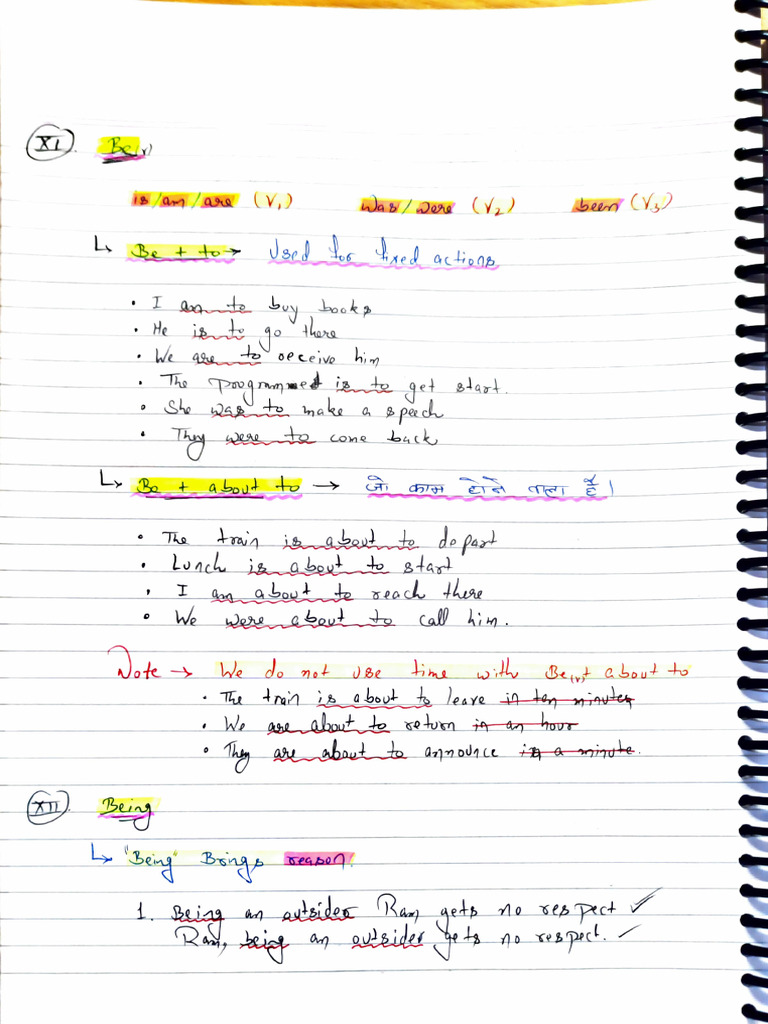 XI. Be(v)
is/am/are (V1) was/were (V2) been (V3)
↳ Be + to → Used for fixed actions
• I am to buy books
• He is to go there
• We are to receive him
• The programme is to get start.
• She was to make a speech
• They were to come back
↳ Be + about to → जो काम होने वाला है।
• The train is about to depart
• Lunch is about to start
• I am about to reach there
• We were about to call him.
Note → We do not use time with Be(v)+ about to
• The train is about to leave in ten minutes
• We are about to return in an hour
• They are about to announce in a minute.
XII. Being
↳ "Being" Brings reason.
1. Being an outsider Ram gets no respect ✓
Ram, being an outsider gets no respect. ✓